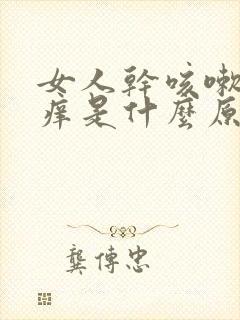 女人幹咳嗽
痒是什麼原
龔傳忠